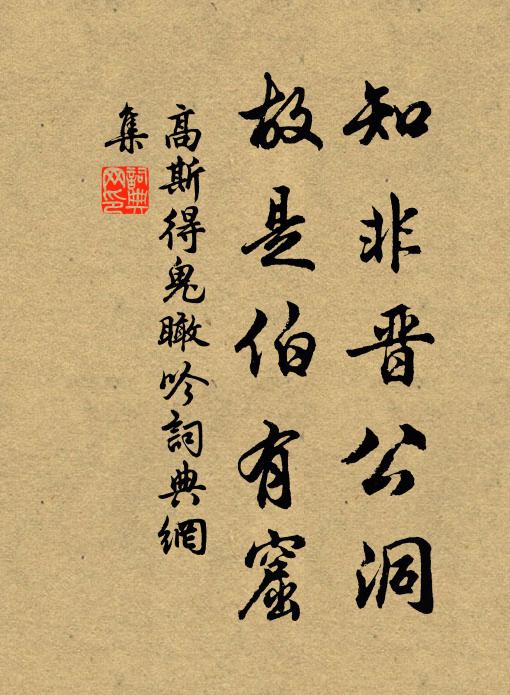 知非晋公洞
故是伯有窟
高斯得鬼瞰吟詞典網
集
詞典网印